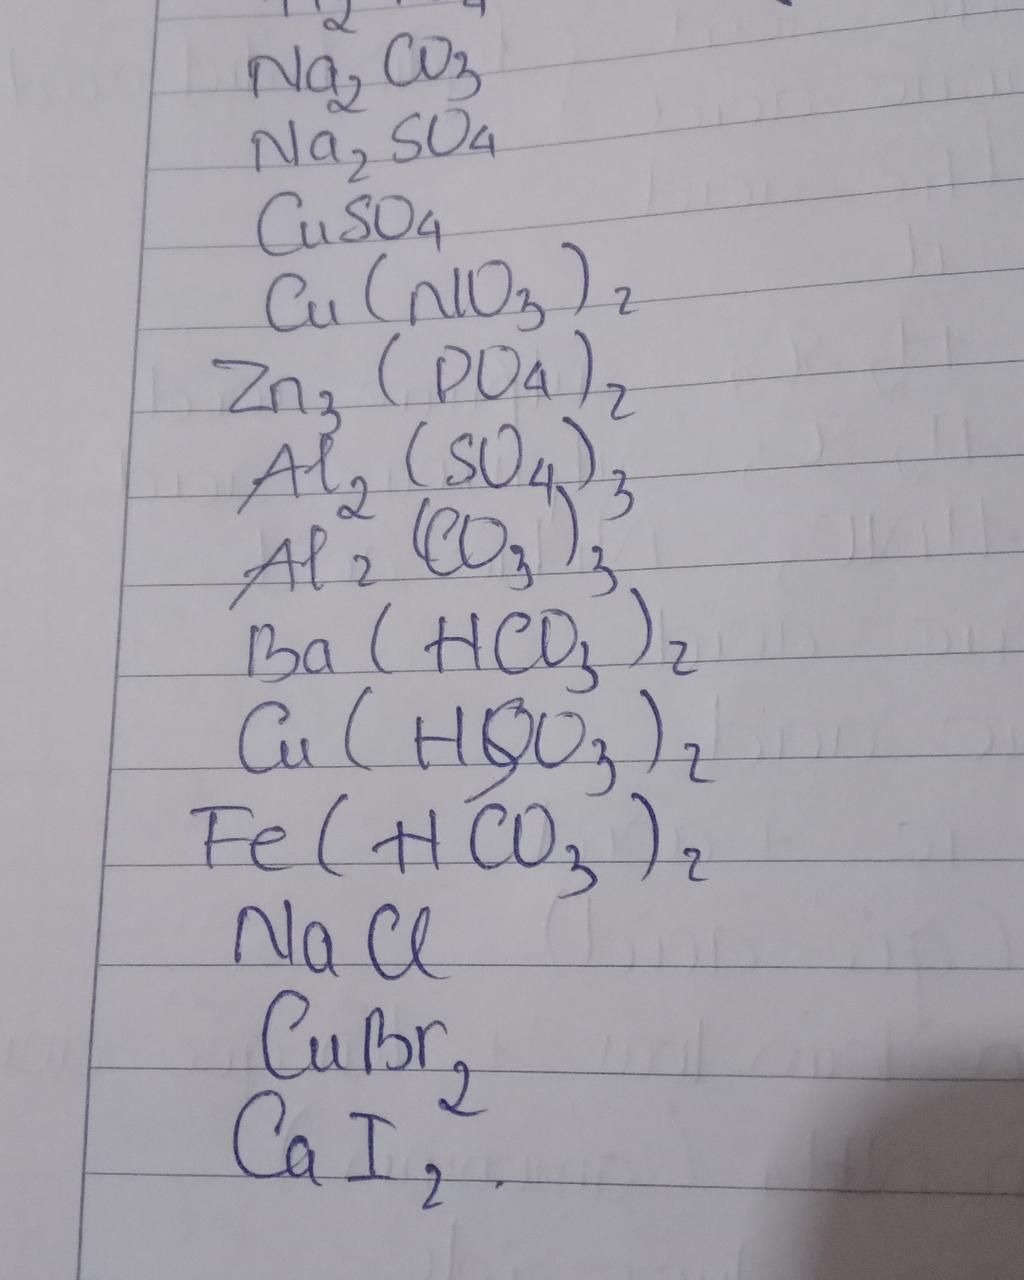 Na₂CO₃
Na₂SO₄
CuSO₄
Cu(NO₃)₂
Zn₃(PO₄)₂
Al₂(SO₄)₃
Al₂(CO₃)₃
Ba(HCO₃)₂
Cu(HSO₃)₂
Fe(HCO₃)₂
NaCl
CuBr₂
CaI₂.